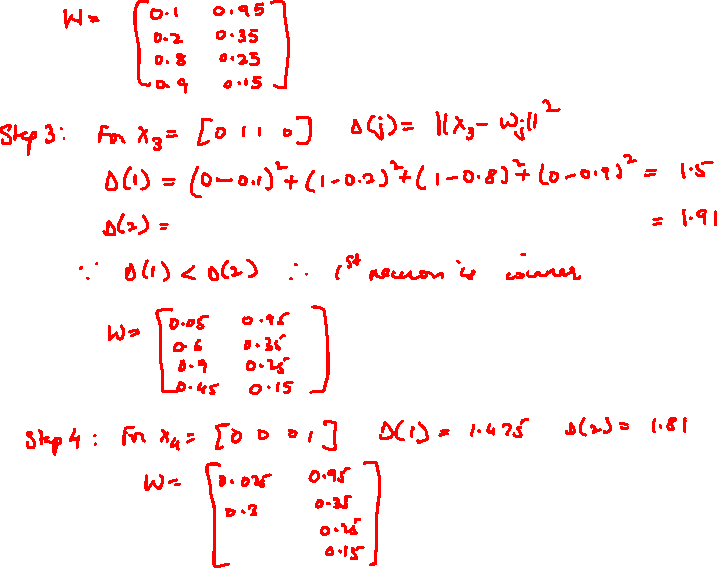 W = [0.1 0.95
0.2 0.35
0.8 0.25
0.9 0.15]
Step 3: For x₃ = [0 1 1 0] Δ(j) = ||x₃ - Wj||²
Δ(1) = (0-0.1)² + (1-0.2)² + (1-0.8)² + (0-0.9)² = 1.5
Δ(2) = = 1.91
∵ Δ(1) < Δ(2) ∴ 1st neuron is winner
W = [0.05 0.95
0.6 0.35
0.9 0.25
0.45 0.15]
Step 4: For x₄ = [0 0 0 1] Δ(1) = 1.475 Δ(2) = 1.81
W = [0.025 0.95
0.3 0.35
0.25
0.15]